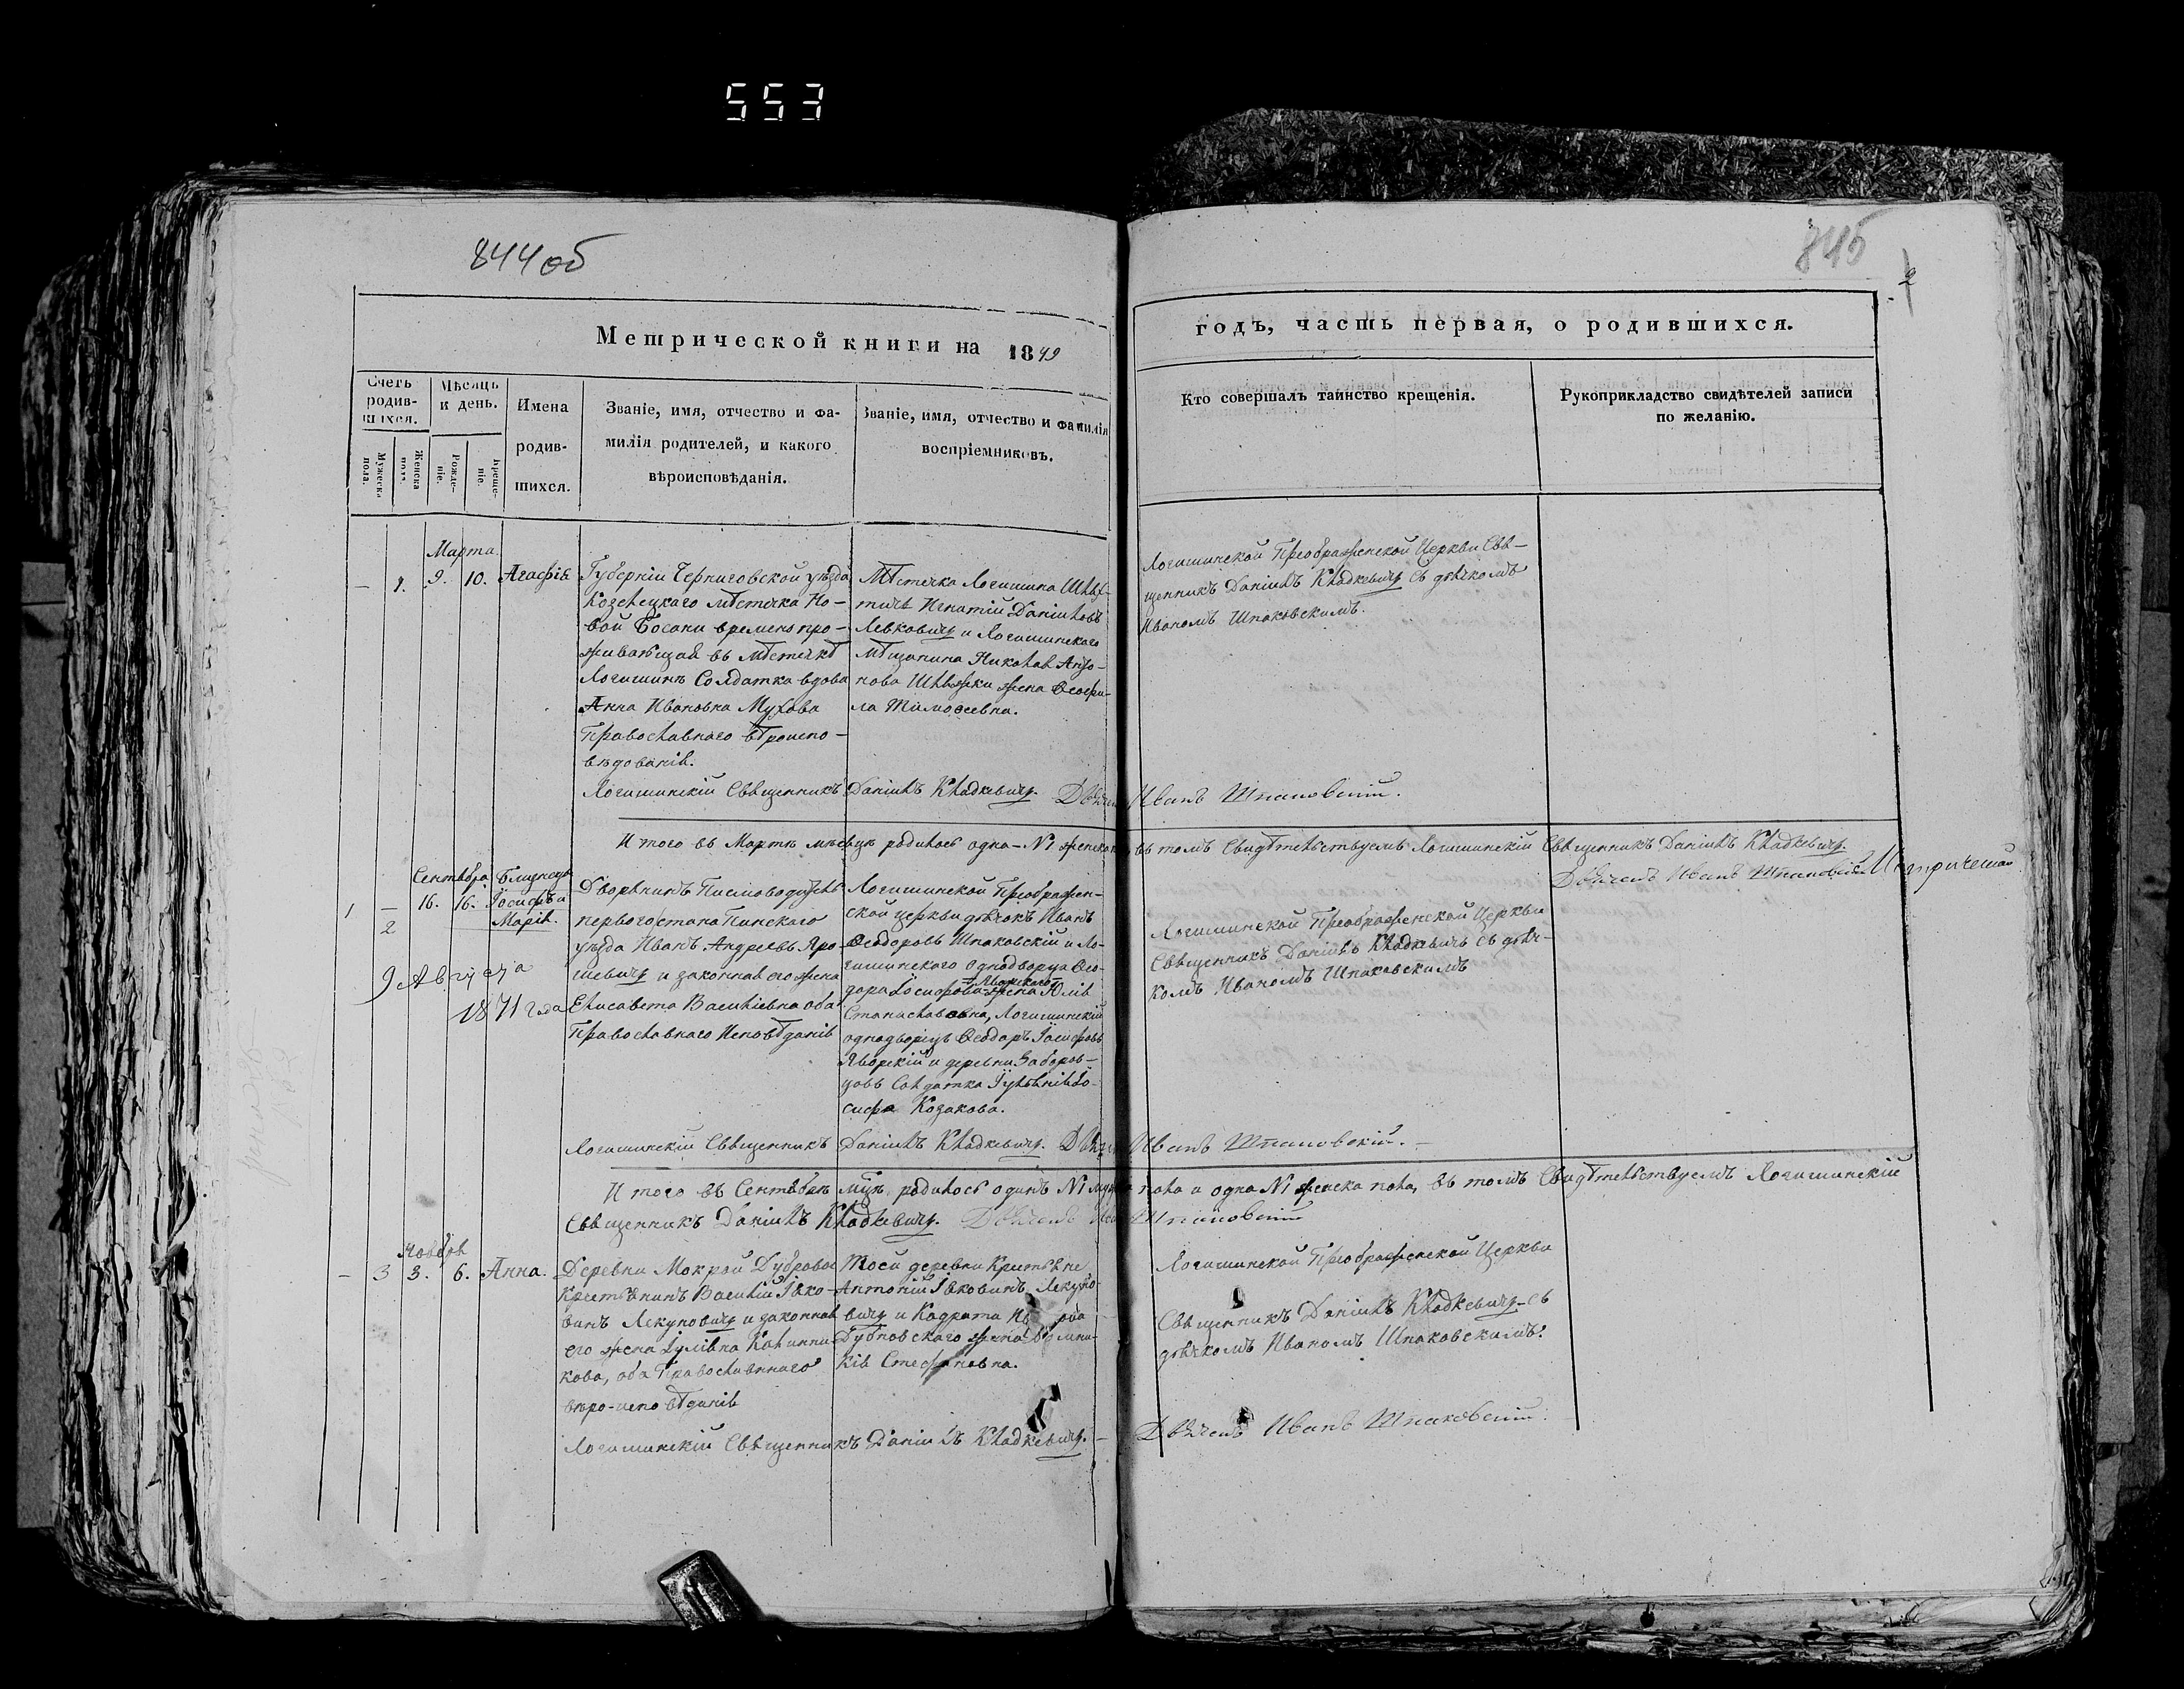 553
844 об
845
2
Метрической книги на 1849
годъ, часть первая, о родившихся.
Счетъ родив-шихся.
Мужеска пола.
Женска пола.
Мѣсяцъ и день.
Рожде-ніе.
Креще-ніе.
Имена
родив-
шихся.
Званіе, имя, отчество и фа-
милія родителей, и какого
вѣроисповѣданія.
Званіе, имя, отчество и фамилія
воспріемниковъ.
Кто совершалъ таинство крещенія.
Рукоприкладство свидѣтелей записи
по желанію.
Марта
— 1. 9. 10. Агафія
Губерніи Черниговской уѣзда
Козелецкаго мѣстечка Но-
вой Босани временно про-
живающая въ мѣстечкѣ
Логишинѣ Солдатка вдова
Анна Ивановна Мухова
Православнаго вѣроиспо-
вѣдованія.
Мѣстечка Логишина Шлях-
тичъ Игнатій Даніиловъ
Левковичъ и Логишинскаго
мѣщанина Николая Анто-
нова жена Феофи-
ла Тимофеевна.
Логишинской Преображенской Церкви Свя-
щенникъ Даніилъ Кладкевичъ съ дьячкомъ
Иваномъ Шпаковскимъ.
Логишинскій Священникъ Даніилъ Кладкевичъ. Дьячекъ Иванъ Шпаковскій.
И того въ Мартѣ мѣсяцѣ родилась одна № 1 женска въ томъ Свидѣтельствуемъ Логишинскій Священникъ Даніилъ Кладкевичъ.
Дьячекъ Иванъ Шпаковскій
Сентября
1 — 16. 16. Близнецы
Іосифъ и
2 Марія.
9 Августа
1871 года
Дворянинъ Писмоводитель
первого стана Пинскаго
уѣзда Иванъ Андреевъ Яро-
шевичъ и законная его жена
Елисавета Васильевна оба
Православнаго Исповѣданія
Логишинской Преображен-
ской церкви дьячокъ Иванъ
Феодоровъ Шпаковскій и Ло-
гишинскаго однодворца Фео-
дора Іосифова Яворскаго жена Юлія
Станиславовна, Логишинскій
однодворецъ Феодоръ Іосифовъ
Яворскій и деревни Заборов-
цовъ Солдатка Іо-
сифа Козакова.
Логишинской Преображенской Церкви
Священникъ Даніилъ Кладкевичъ съ дьяч-
комъ Иваномъ Шпаковскимъ
Логишинскій Священникъ Даніилъ Кладкевичъ. Дьячекъ Иванъ Шпаковскій.
И того въ Сентябрѣ мѣцѣ родилось одинъ № 1 мужска пола и одна № 1 женска пола, въ томъ Свидѣтельствуемъ Логишинскій
Священникъ Даніилъ Кладкевичъ. Дьячекъ Иванъ Шпаковскій
Ноября
— 3 3. 6. Анна.
Деревни Мокрой Дубровы
Крестьянинъ Василій Яко-
вичъ и законная
его жена
кова, оба Православнаго
вѣро-исповѣданія
Тоей деревни Крестьяне
Антоній
вичъ и Кодрата
Дубновскаго жена Домни-
кія Стефановна.
Логишинской Преображенской Церкви
Священникъ Даніилъ Кладкевичъ съ
дьячкомъ Иваномъ Шпаковскимъ.
Логишинскій Священникъ Даніилъ Кладкевичъ.
Дьячекъ Иванъ Шпаковскій.